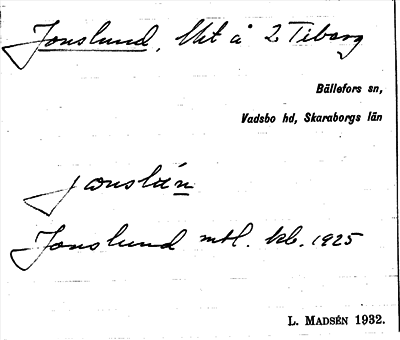 Jonslund, Utj å 2 Tiborg
Bällefors sn,
Vadsbo hd, Skaraborgs län
jonslún
Jonslund mtl. kb. 1925
L. MADSÉN 1932.